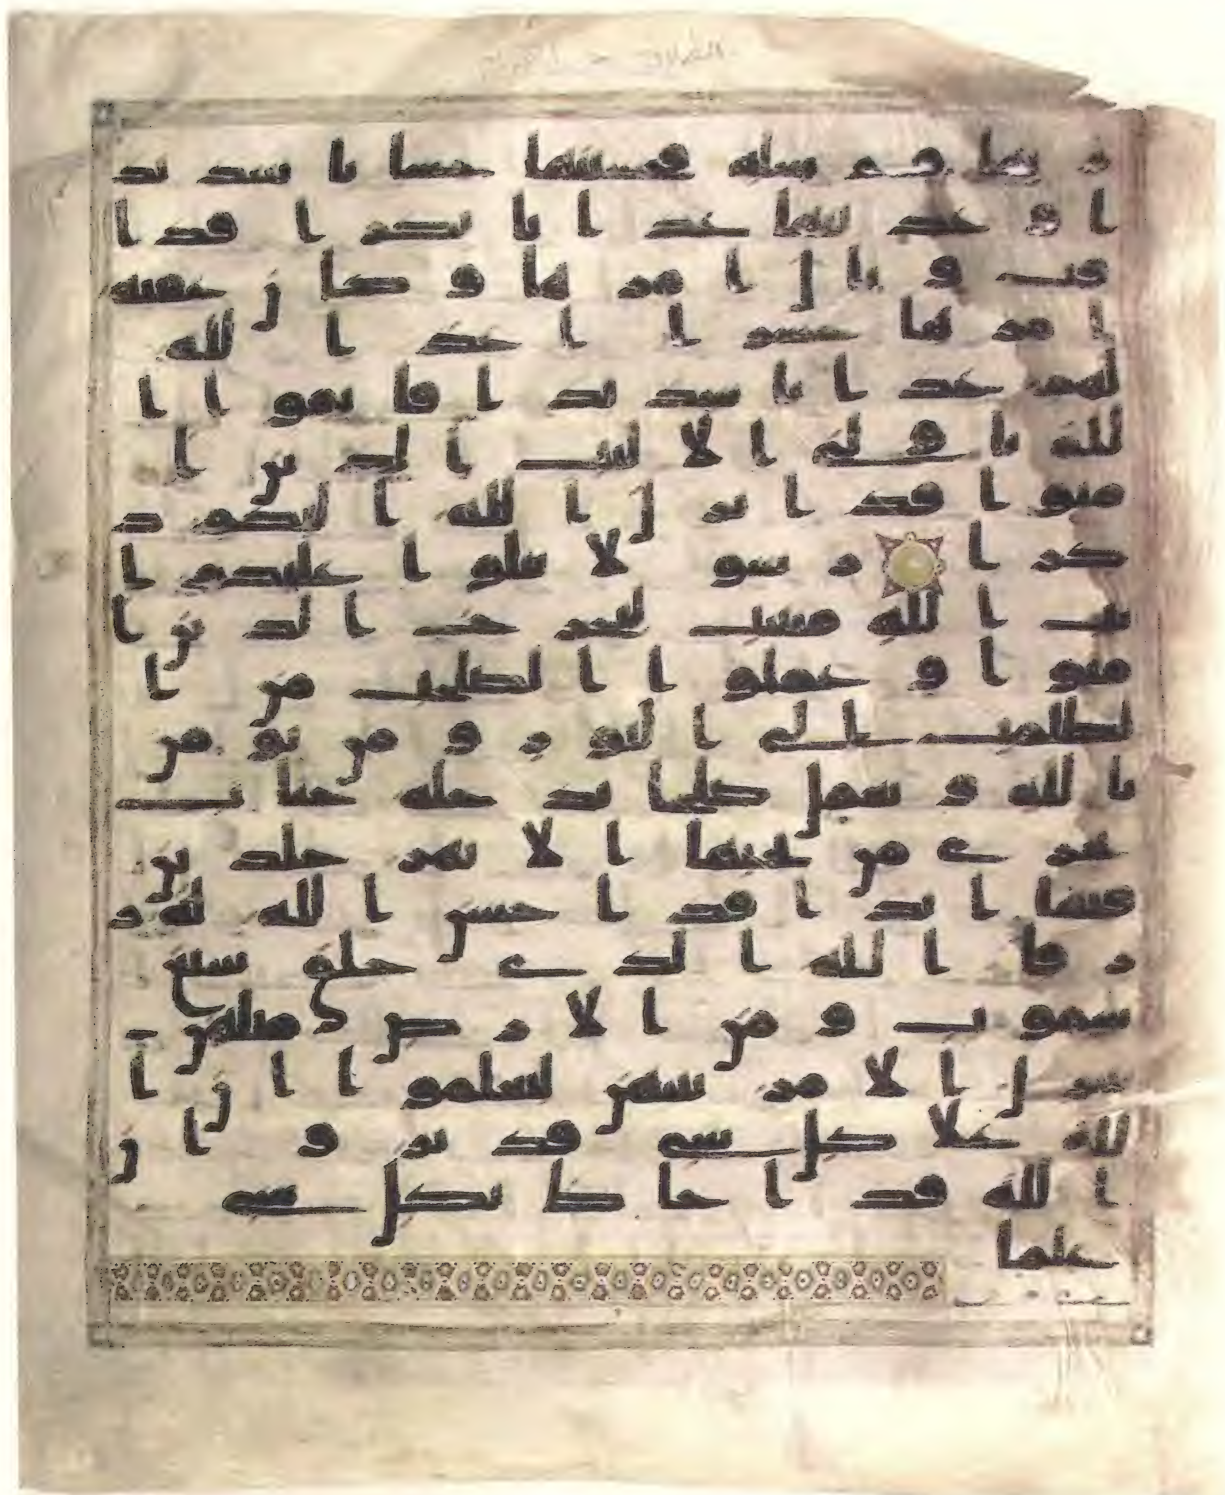 ر بها و رسله فحسبنها حسا با شد يد
ا و عذ بنها عذ ا با نكر ا فذ ا
قت و با ل ا مر ها و كا ن عقبة
ا مر ها خسر ا ا عد ا لله
لهم عذ ا با شد يد ا فا تقو ا ا
لله يا و لي ا لا لبب ا لذ ين ا
منو ا قد ا نز ل ا لله ا ليكم ذ
كر ا ر سو لا يتلو ا عليكم ا
يت ا لله مبينت ليخر ج ا لذ ين ا
منو ا و عملو ا ا لصلحت من ا
لظلمت ا لي ا لنو ر و من يؤ من
با لله و يعمل صلحا يد خله جنا ت
تجر ي من تحتها ا لا نهر خلد ين
فيها ا بد ا قد ا حسن ا لله له ر
ز قا ا لله ا لذ ي خلق سبع
سمو ت و من ا لا ر ض مثلهن يـ
تنز ل ا لا مر بينهن لتعلمو ا ا ن ا
لله علا كل شي قد ير و ا ن
ا لله قد ا حا ط بكل شي
علما